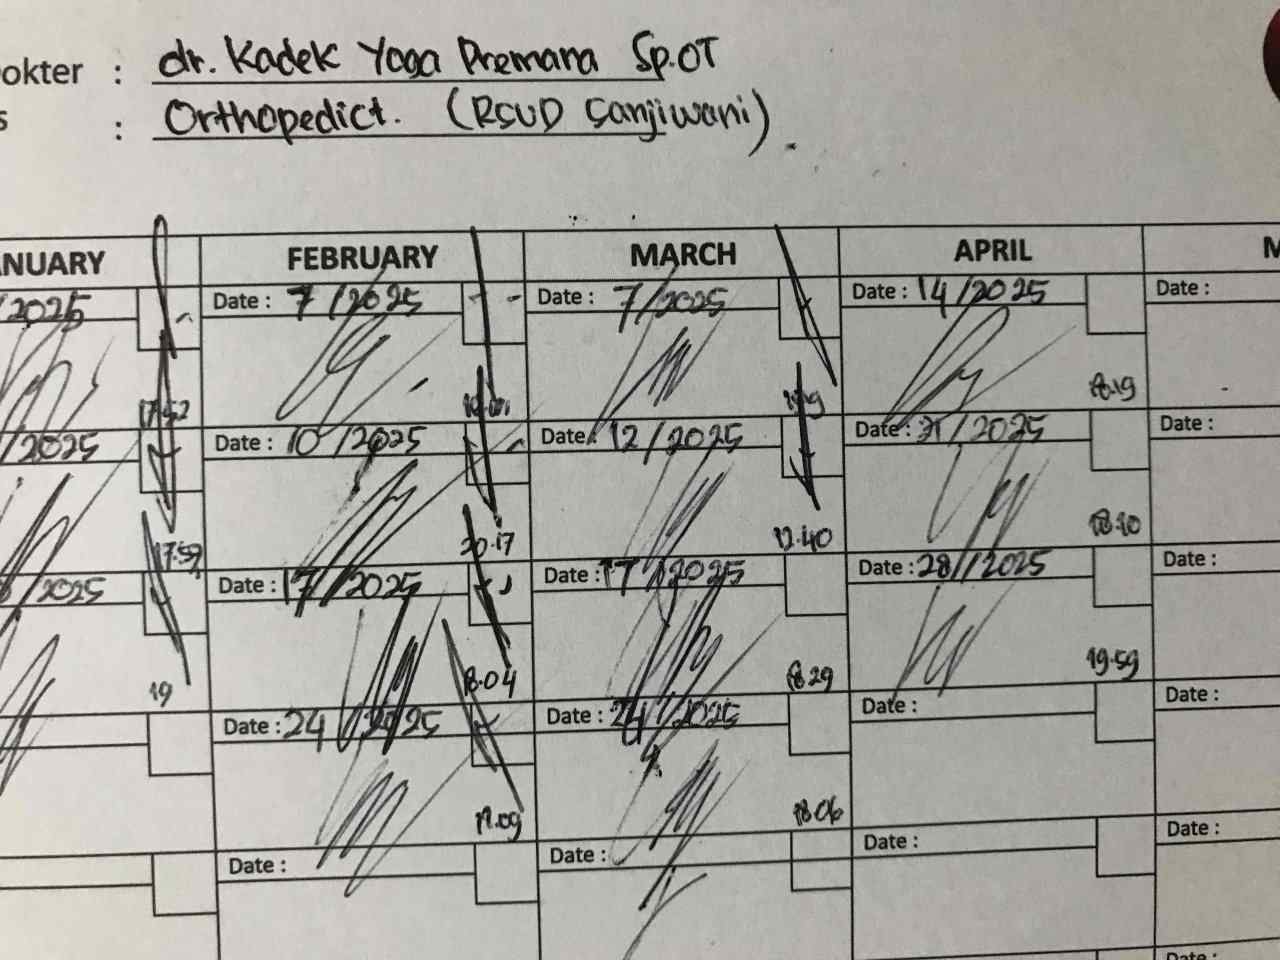 okter : dr. Kadek Yoga Premana Sp.OT
s : Orthopedict. (RSUD Sanjiwani)
NUARY FEBRUARY MARCH APRIL M
/2025 Date : 7/2025 Date : 7/2025 Date : 14/2025 Date :
17.52 18.19
/2025 Date : 10/2025 Date : 12/2025 Date : 21/2025 Date :
17.59 20.17 12.40 18.10
/2025 Date : 17/2025 Date : 17/2025 Date : 28/2025 Date :
19 18.04 18.29 19.59
Date : 24/2025 Date : 24/2025 Date : Date :
17.09 18.06
Date : Date : Date : Date :
Date :